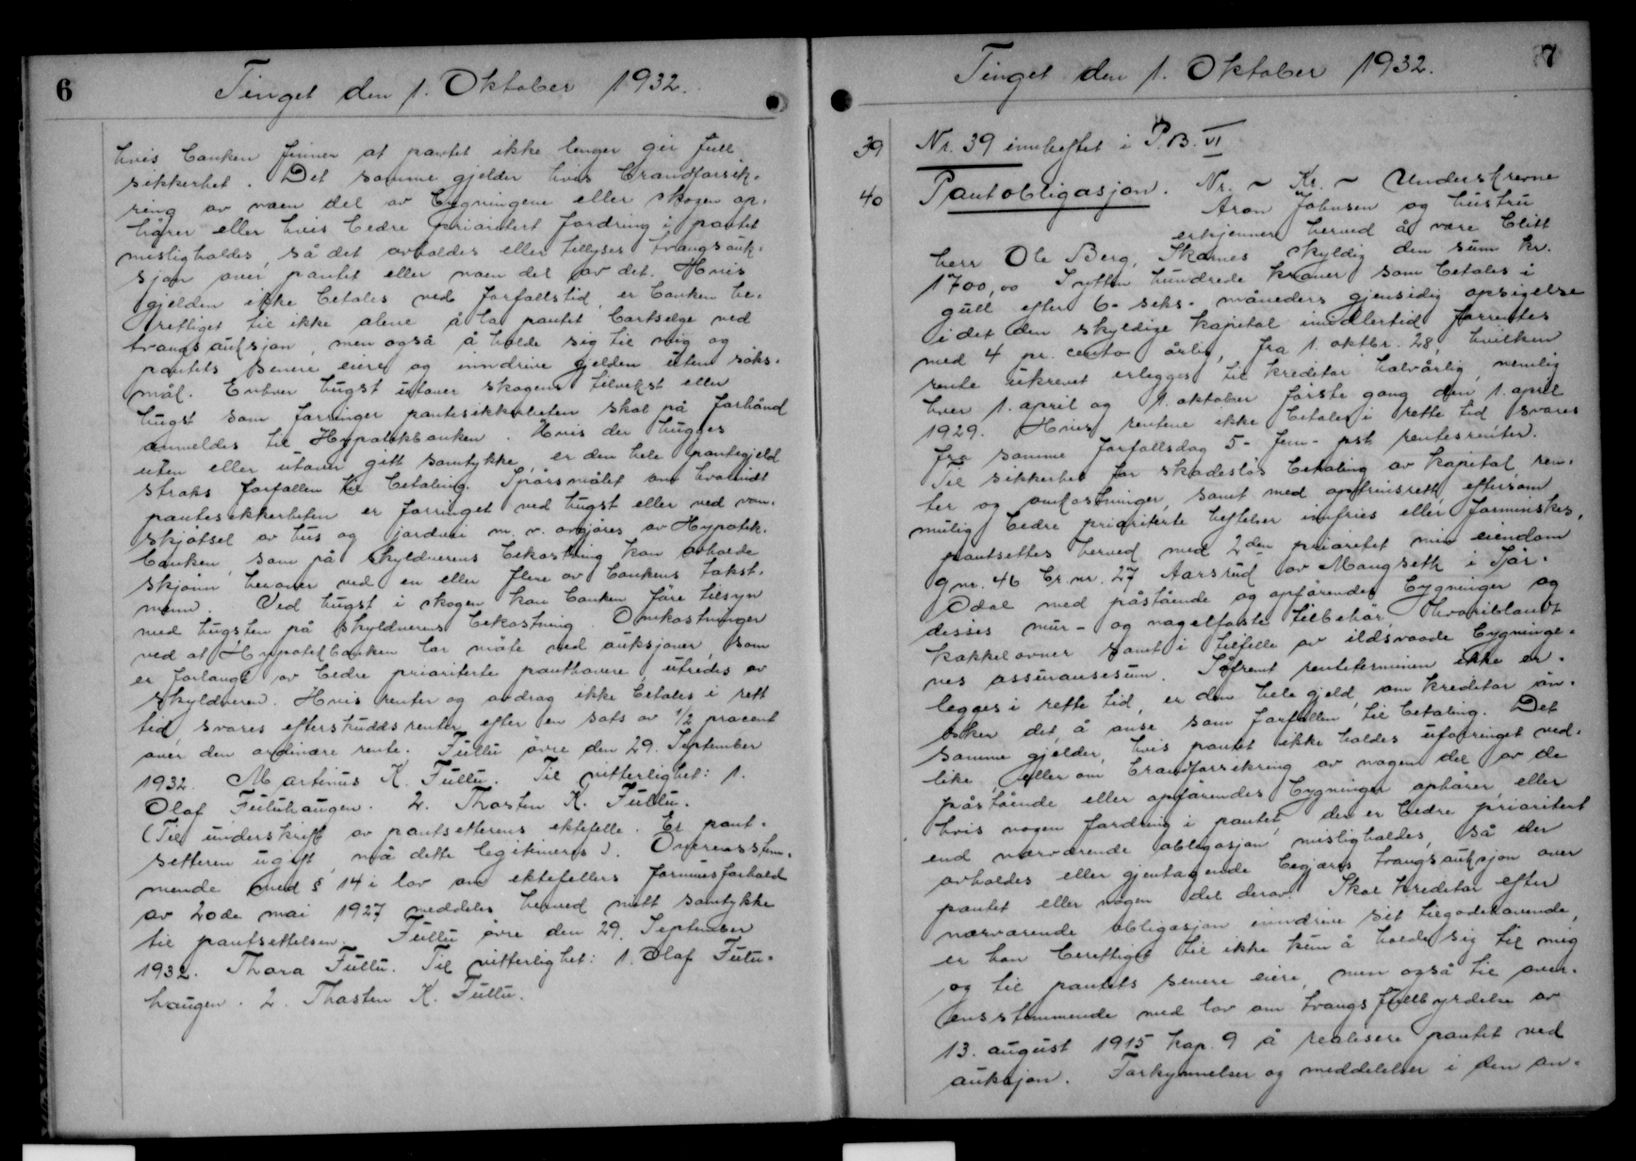 6
Tinget den 1. Oktober 1932.
hvis banken finner at pantet ikke lenger gir full
sikkerhet. Det samme gjelder hvis brandforsik-
ring av noen del av bygningene eller skogen op-
hører eller hvis bedre prioritert fordring i pantet
misligholdes, så det avholdes eller tillyses tvangsauk-
sjon over pantet eller noen del av det. Hvis
gjelden ikke betales ved forfallstid, er banken be-
rettiget til ikke alene å la pantet bortselge ved
tvangsauksjon, men også å holde sig til mig og
pantets senere eiere og inndrive gjelden uten søks-
mål. Enhver hugst utover skogens tilvekst eller
hugst som forringer pantesikkerheten skal på forhånd
anmeldes til Hypotekbanken. Hvis der hugges
uten eller utover gitt samtykke, er den hele pantegjeld
straks forfallen til betaling. Spørsmålet om hvorvidt
pantesikkerheten er forringet ved hugst eller ved van-
skjøtsel av hus og jordvei m. v. avgjøres av Hypotek-
banken, som på skyldnerens bekostning kan avholde
skjønn herover ved en eller flere av bankens takst-
menn. Ved hugst i skogen kan banken føre tilsyn
med hugsten på skyldnerens bekostning. Omkostninger
ved at Hypotekbanken lar møte ved auksjoner, som
er forlangt av bedre prioriterte panthavere, utredes av
skyldneren. Hvis renter og avdrag ikke betales i rett
tid svares efterskuddsrenter efter en sats av 1/2 procent
over den ordinære rente. Fullu øvre den 29. September
1932. Martinus K. Fullu. Til vitterlighet: 1.
Olaf Fuluhaugen. 2. Thorsten K. Fullu.
(Til underskrift av pantsetterens ektefelle. Er pant-
setteren ugift, må dette legitimeres). Overensstem-
mende med § 14 i lov om ektefellers formuesforhold
av 20de mai 1927 meddeles herved mitt samtykke
til pantsettelsen. Fullu øvre den 29. September
1932. Thora Fullu. Til vitterlighet: 1. Olaf Fulu-
haugen. 2. Thorsten K. Fullu.
7
Tinget den 1. Oktober 1932.
39 Nr. 39 innheftet i P.B. VI
40 Pantobligasjon. Nr. - Kr. - Underskrevne
Aron Johnsen og hustru
erkjenner herved å være blitt
herr Ole Berg, Skarnes skyldig den sum kr.
1700,00 Sytten hundrede kroner som betales i
gull efter 6- seks- måneders gjensidig opsigelse
idet den skyldige kapital imidlertid forrentes
med 4 pr. cento årlig, fra 1. oktbr. 28, hvilken
rente ukrevet erlegges til kreditor halvårlig, nemlig
hver 1. april og 1. oktober første gang den 1. april
1929. Hvis rentene ikke betales i rette tid svares
fra samme forfallsdag 5- fem- pst. rentesrenter.
Til sikkerhet for skadesløs betaling av kapital, ren-
ter og omkostninger, samt med opprinsrett eftersom
mulig bedre prioriterte heftelser innfries eller forminskes,
pantsettes herved med 2den prioritet min eiendom
gnr. 46 br.nr. 27 Aarsrud av Mangseth i Sør-
Odal med påstående og opførendes bygninger og
disses mur- og nagelfaste tilbehør, hvoriblandt
kakkelovner samt i tilfelle av ildsvaade bygninge-
nes assuransesum. Såfremt renteterminen ikke er-
legges i rette tid, er den hele gjeld, om kreditor øn-
sker det, å anse som forfallen til betaling. Det
samme gjelder, hvis pantet ikke holdes uforringet ved-
like, eller om brandforsikring av nogen del av de
påstående eller opførendes bygninger ophører, eller
hvis nogen fordring i pantet, der er bedre prioritert
end nærværende obligasjon misligholdes, så der
avholdes eller gjentagende begjæres tvangsauksjon over
pantet eller nogen del derav. Skal kreditor efter
nærværende obligasjon inndrive sit tilgodehavende,
er han berettiget til ikke kun å holde sig til mig
og til pantets senere eiere, men også til over-
ensstemmende med lov om tvangsfullbyrdelse av
13. august 1915 kap. 9 å realisere pantet ved
auksjon. Forkynnelser og meddelelser i den an-